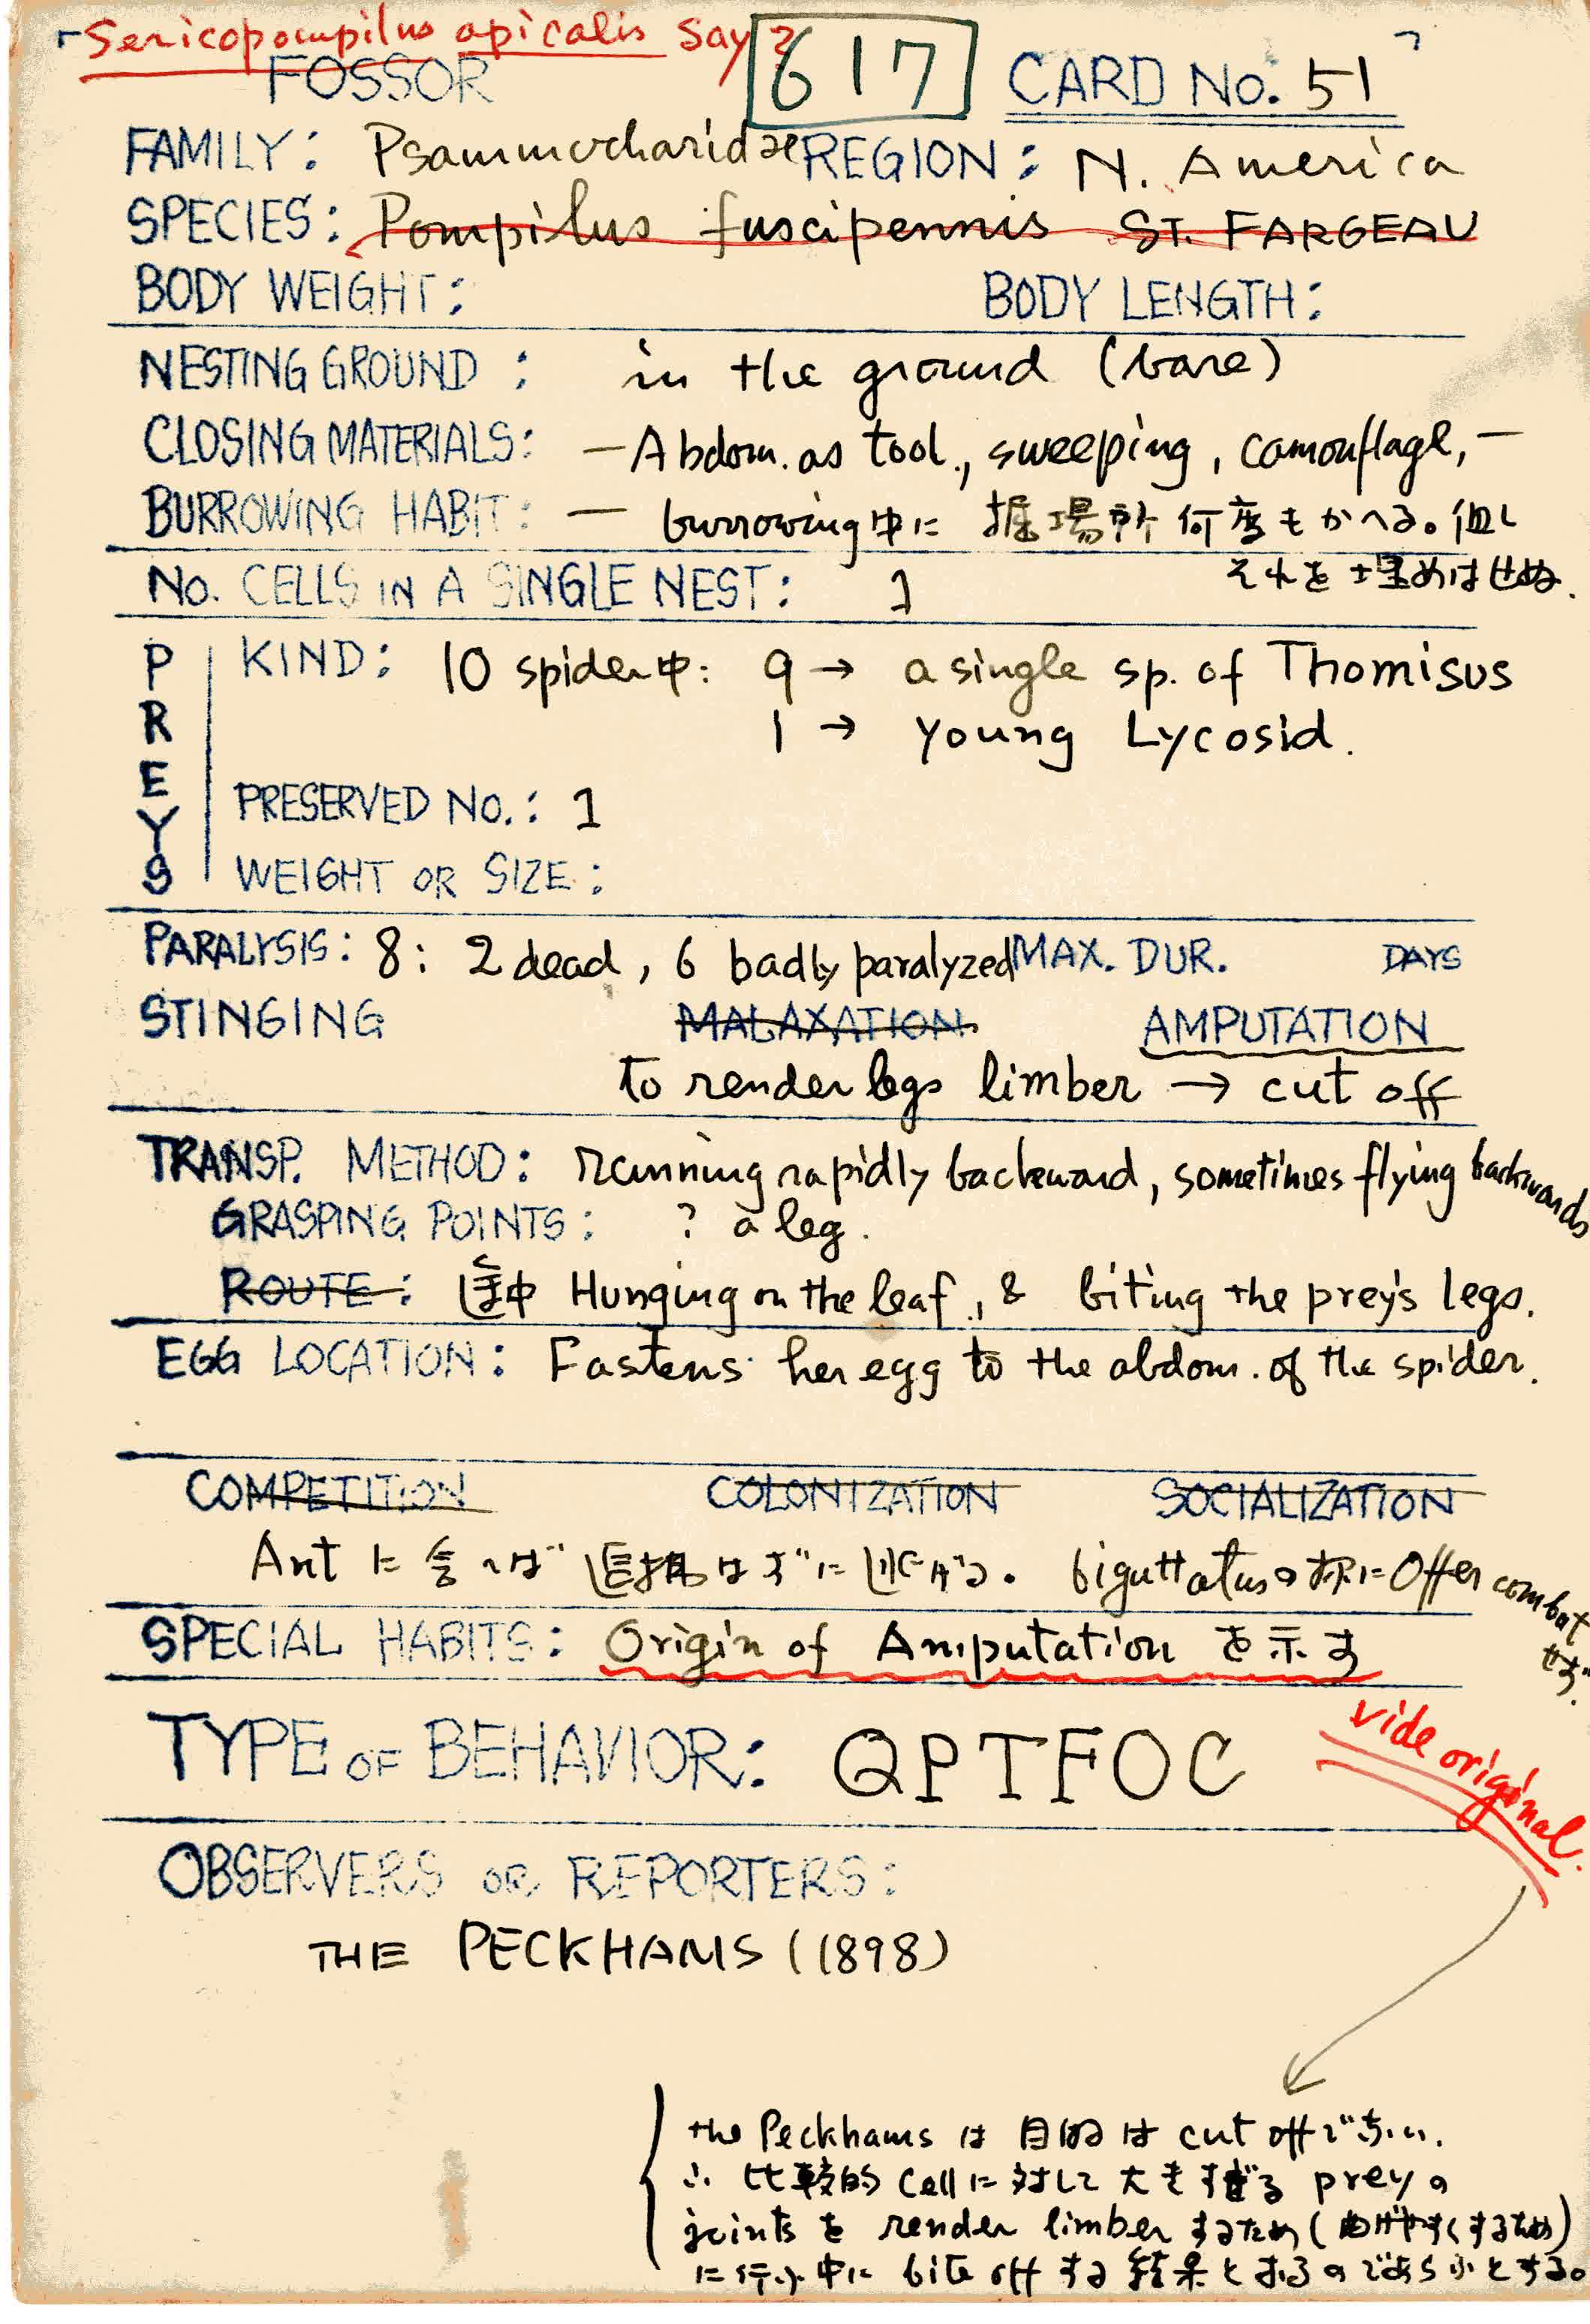 「Sericopompilus apicalis Say ?」
FOSSOR 617 CARD No. 51
FAMILY: Psammocharidae REGION: N. America
SPECIES: Pompilus fuscipennis ST. FARGEAU
BODY WEIGHT: BODY LENGTH:
NESTING GROUND : in the ground (bare)
CLOSING MATERIALS: — Abdom. as tool, sweeping, camouflage, —
BURROWING HABIT: — burrowing中に 掘場所何度もかへる。但し
それを埋めはせぬ.
No. CELLS IN A SINGLE NEST: 1
PREYS
KIND: 10 spider中: 9 → a single sp. of Thomisus
1 → young Lycosid.
PRESERVED No.: 1
WEIGHT OR SIZE:
PARALYSIS: 8: 2 dead, 6 badly paralyzed MAX. DUR. DAYS
STINGING MALAXATION AMPUTATION
to render legs limber → cut off
TRANSP. METHOD: Running rapidly backward, sometimes flying backwards
GRASPING POINTS: ? a leg.
ROUTE: 途中 Hunging on the leaf, & biting the prey's legs.
EGG LOCATION: Fastens her egg to the abdom. of the spider.
COMPETITION COLONIZATION SOCIALIZATION
Ant に会へば はずに biguttatusの様に Offer combat
せず.
SPECIAL HABITS: Origin of Amputation を示す
TYPE OF BEHAVIOR: QPTFOC
vide original.
OBSERVERS OR REPORTERS:
THE PECKHAMS (1898)
the Peckhams は 目的は cut offでない.
∴ 比較的 cellに対して大きすぎる preyの
joints を render limber するため(曲げやすくするため)
に行ふ中に bite off する結果となるのであらふとする。